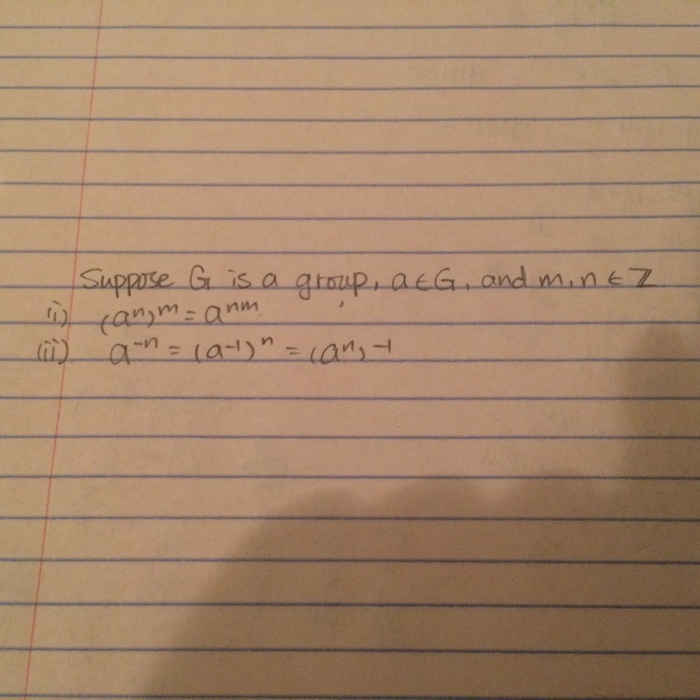 Suppose G is a group, a ∈ G, and m, n ∈ ℤ
(i) (aⁿ)ᵐ = aⁿᵐ.
(ii) a⁻ⁿ = (a⁻¹)ⁿ = (aⁿ)⁻¹